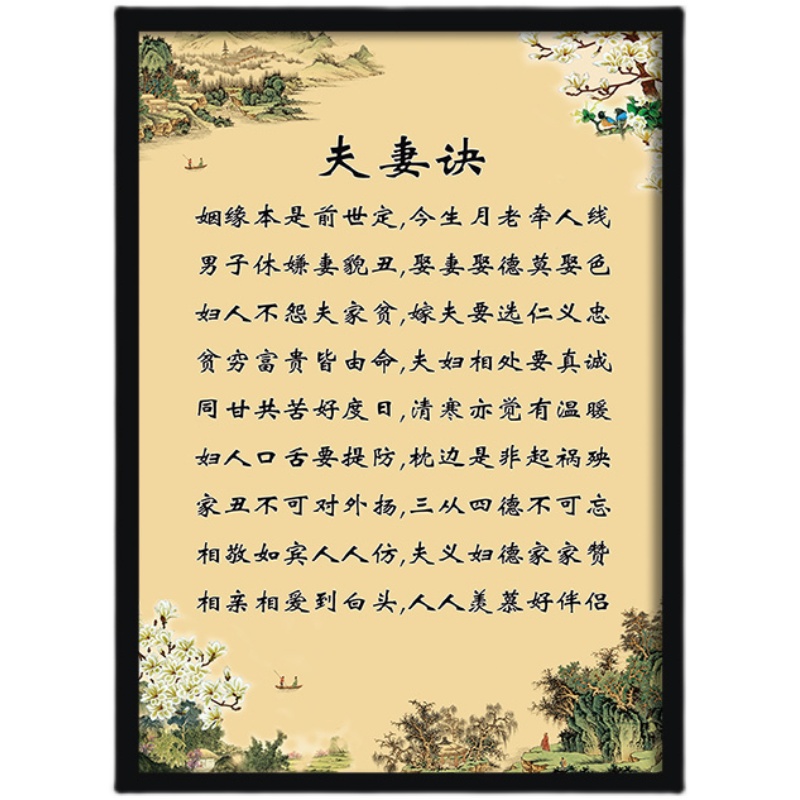 夫妻诀
姻缘本是前世定,今生月老牵人线
男子休嫌妻貌丑,娶妻娶德莫娶色
妇人不怨夫家贫,嫁夫要选仁义忠
贫穷富贵皆由命,夫妇相处要真诚
同甘共苦好度日,清寒亦觉有温暖
妇人口舌要提防,枕边是非起祸殃
家丑不可对外扬,三从四德不可忘
相敬如宾人人仿,夫义妇德家家赞
相亲相爱到白头,人人羡慕好伴侣